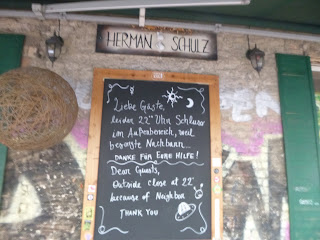 HERMAN SCHULZ
Liebe Gäste,
leider 22°° Uhr Schluss
im Außenbereich, weil
besorgte Nachbarn...
DANKE FÜR EURE HILFE!
Dear Guests,
Outside close at 22°°
because of Neighbor
THANK YOU